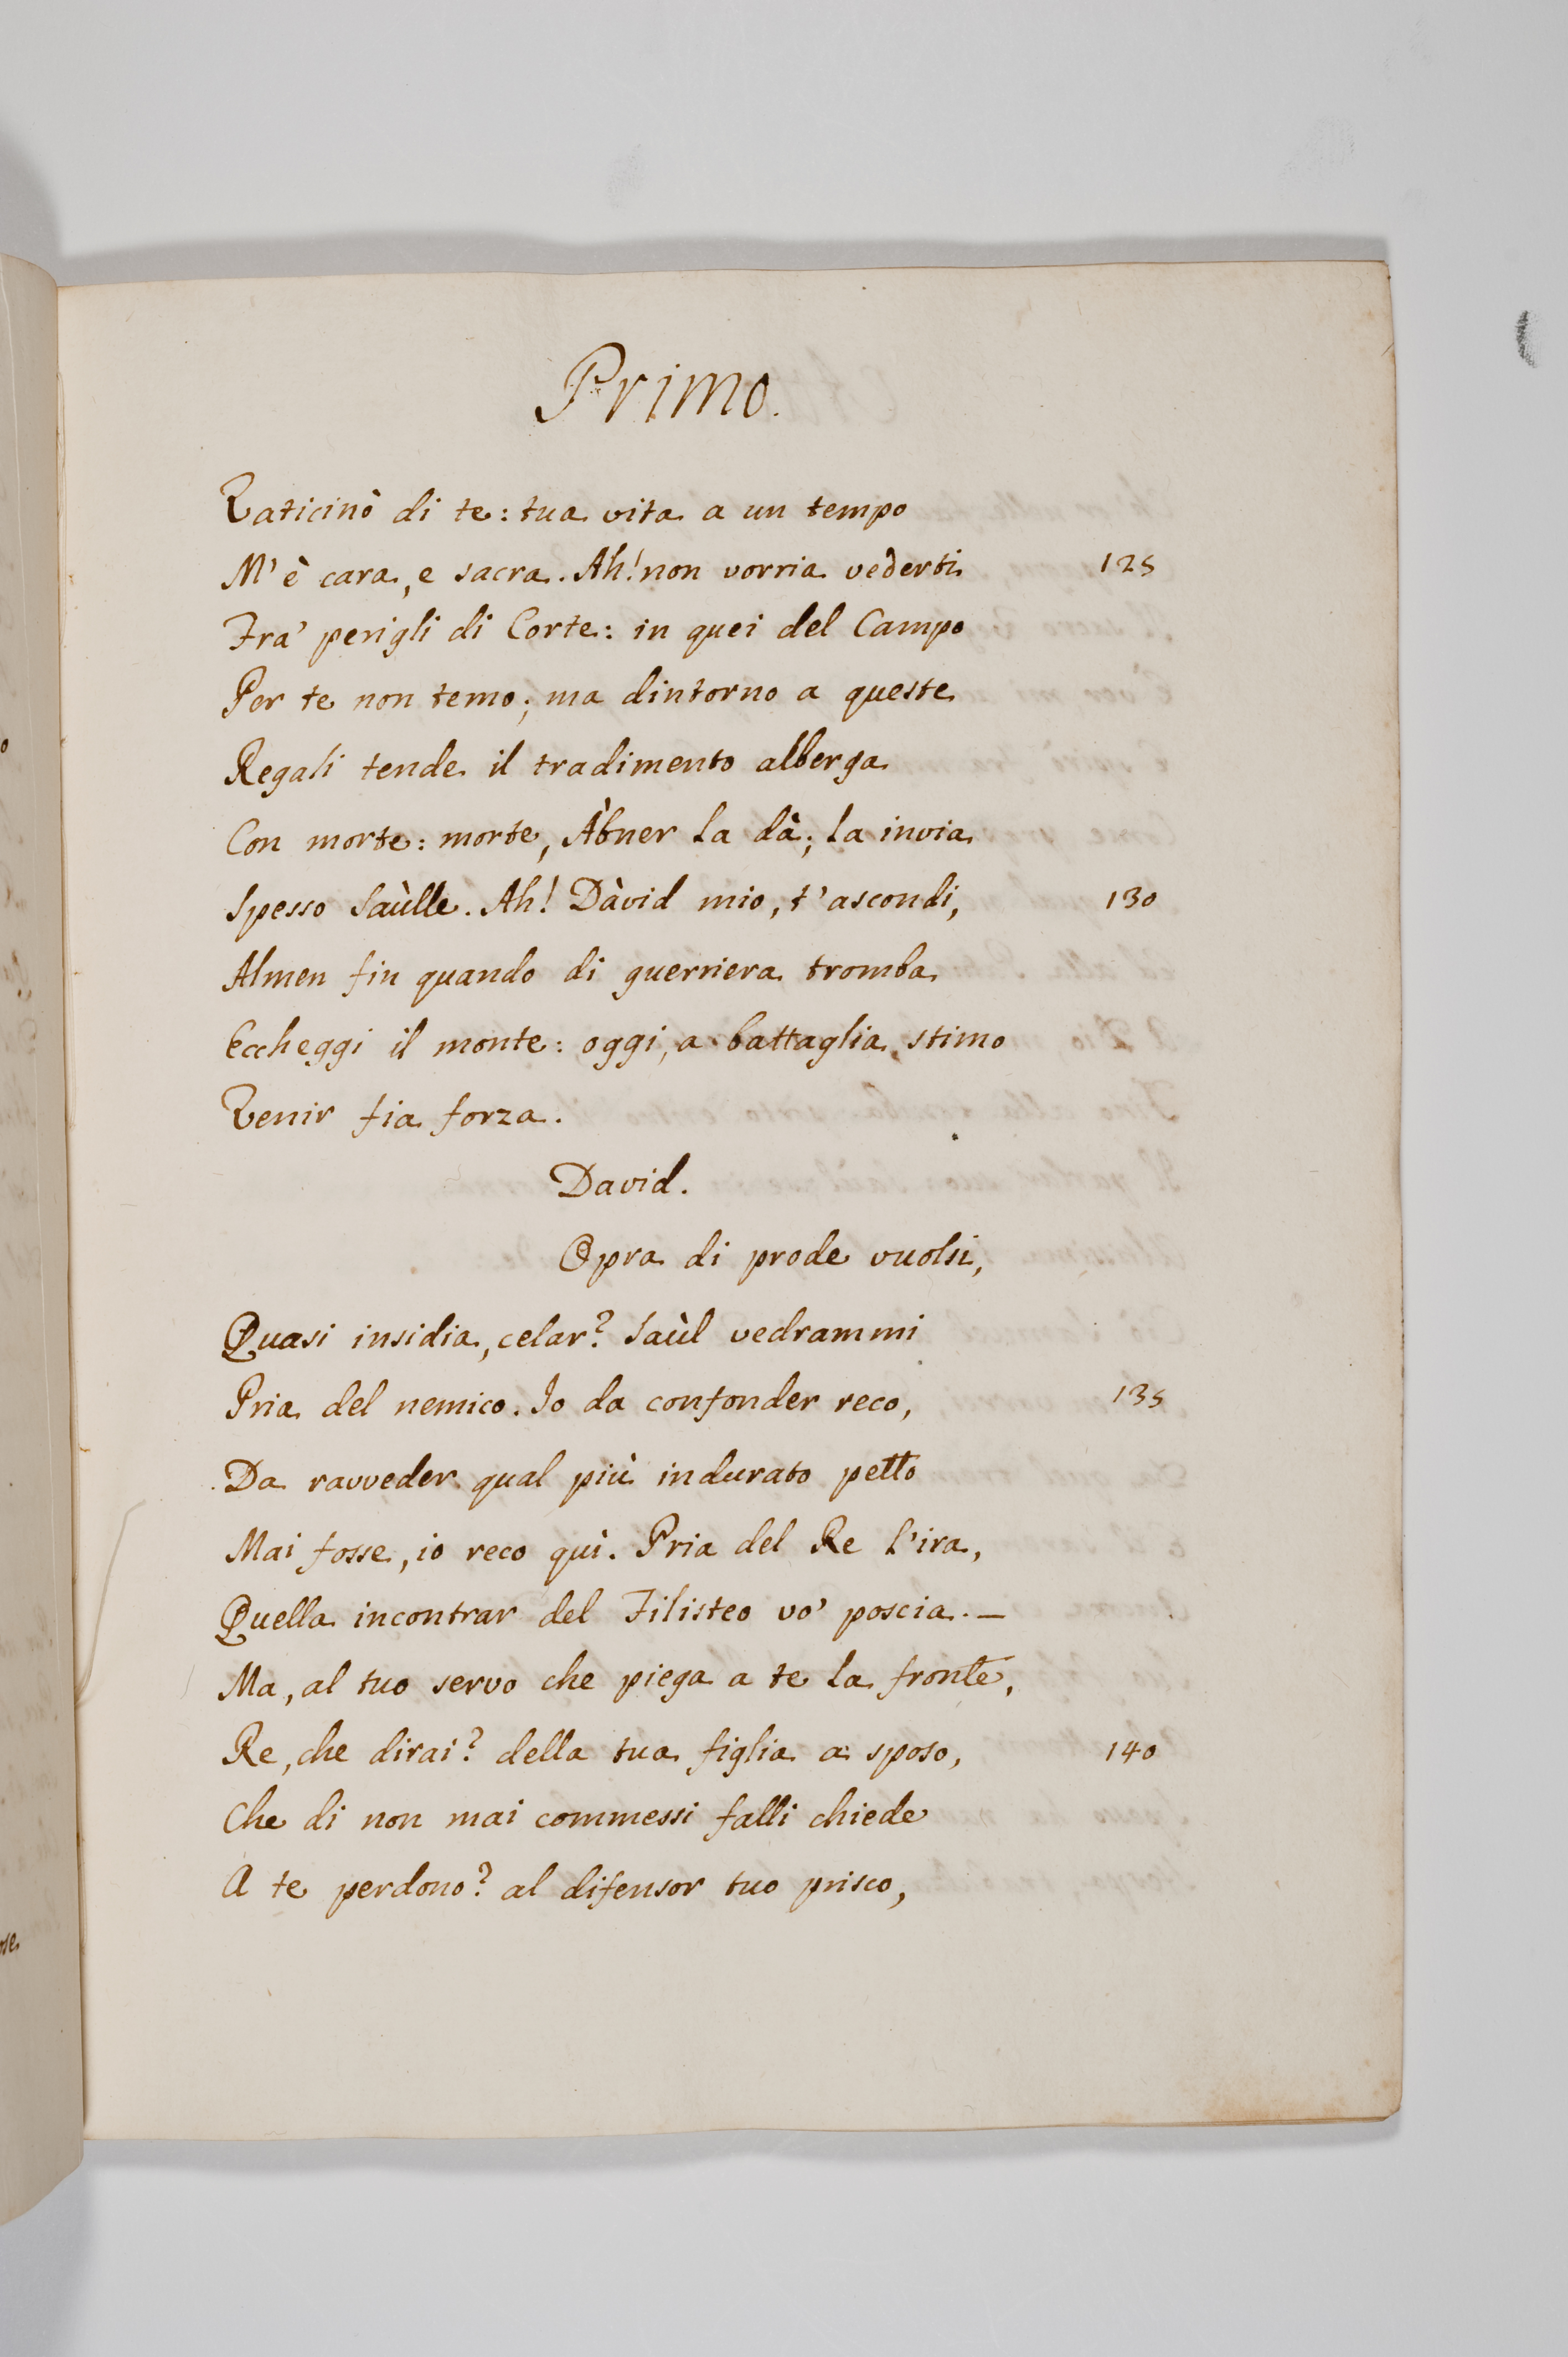 Primo.
Vaticinò di te: tua vita a un tempo
M'è cara, e sacra. Ah! non vorria vederti 125
Fra' perigli di Corte: in quei del Campo
Per te non temo; ma dintorno a queste
Regali tende il tradimento alberga
Con morte: morte, Àbner la dà; la invia
Spesso Saùlle. Ah! Dàvid mio, t'ascondi, 130
Almen fin quando di guerriera tromba
Eccheggi il monte: oggi, a battaglia, stimo
Venir fia forza.
David.
Opra di prode vuolsi,
Quasi insidia, celar? Saùl vedrammi
Pria del nemico. Io da confonder reco, 135
Da ravveder qual più indurato petto
Mai fosse, io reco quì. Pria del Re l'ira,
Quella incontrar del Filisteo vo' poscia. —
Ma, al tuo servo che piega a te la fronte,
Re, che dirai? della tua figlia a sposo, 140
Che di non mai commessi falli chiede
A te perdono? al difensor tuo prisco,